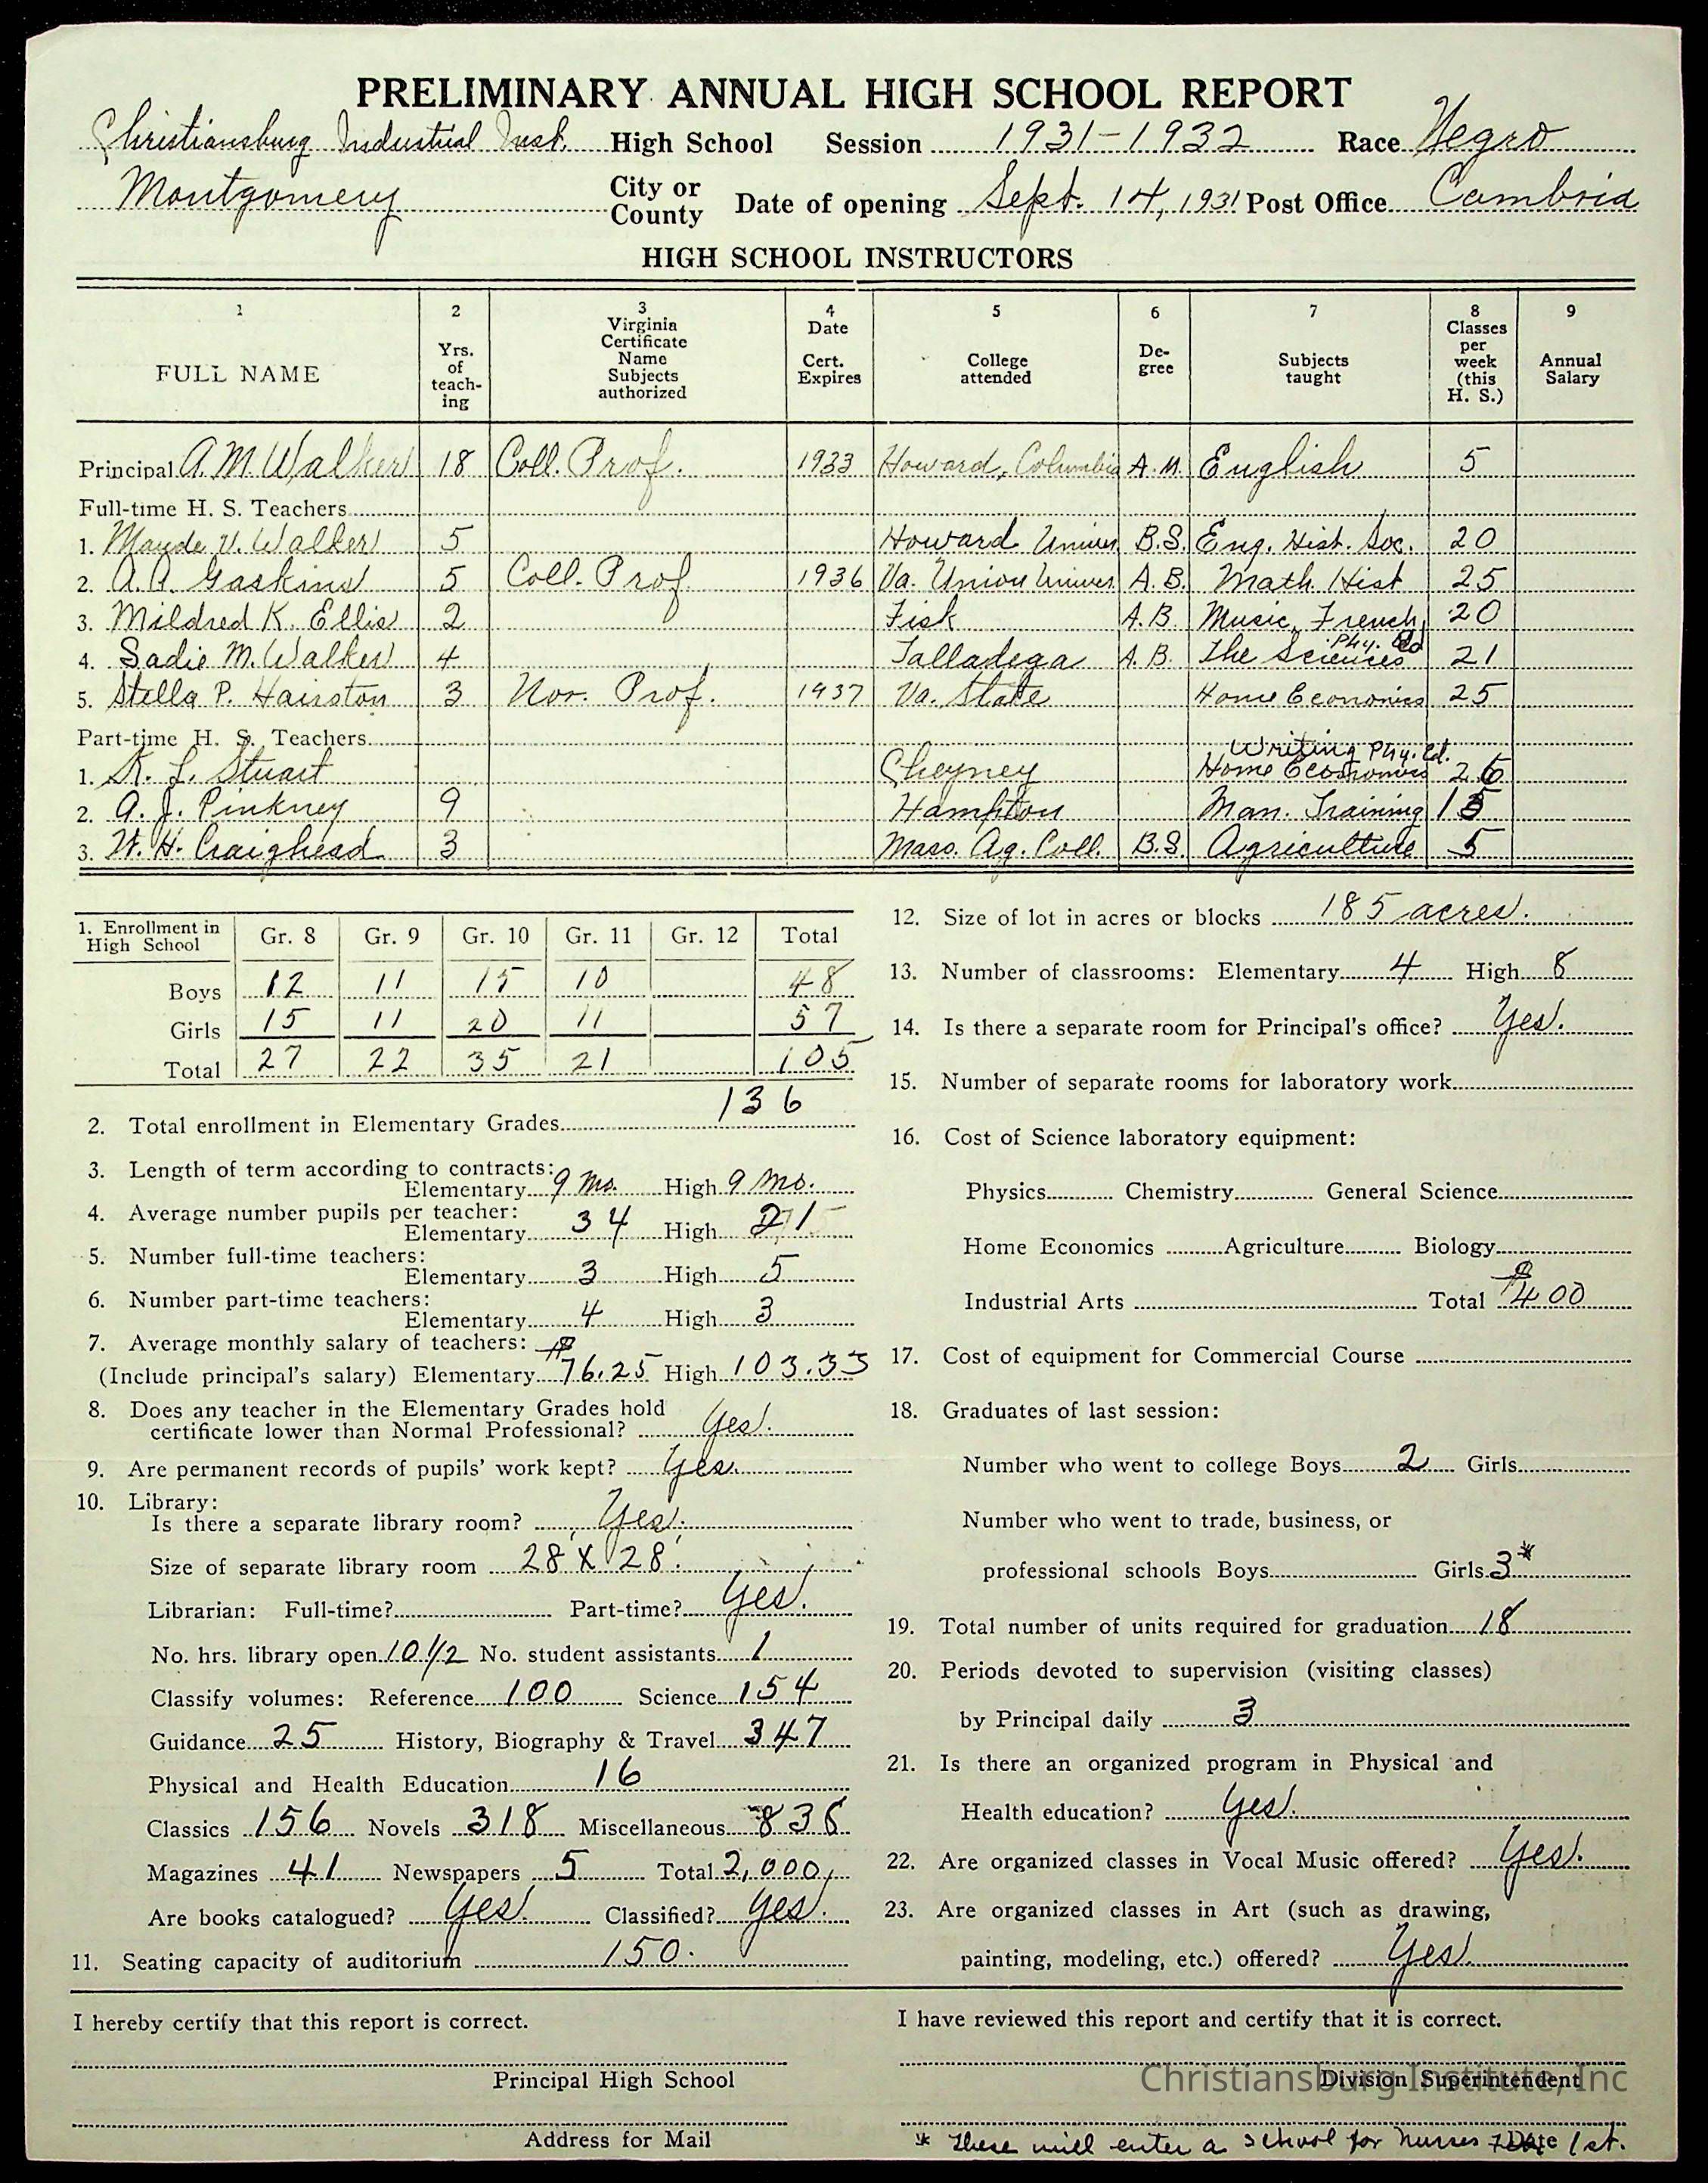 PRELIMINARY ANNUAL HIGH SCHOOL REPORT
Christiansburg Industrial Inst. High School Session 1931-1932 Race Negro
Montgomery City or County Date of opening Sept. 14, 1931 Post Office Cambria
HIGH SCHOOL INSTRUCTORS
1 FULL NAME 2 Yrs. of teach-ing 3 Virginia Certificate Name Subjects authorized 4 Date Cert. Expires 5 College attended 6 De-gree 7 Subjects taught 8 Classes per week (this H. S.) 9 Annual Salary
Principal A. M. Walker 18 Coll. Prof. 1933 Howard, Columbia A. M. English 5
Full-time H. S. Teachers
1. Maude V. Walker 5 Howard Univer. B.S. Eng. Hist. Soc. 20
2. A. A. Gaskins 5 Coll. Prof. 1936 Va. Union Univer. A. B. Math. Hist 25
3. Mildred K. Ellis 2 Fisk A. B. Music, French, 20
4. Sadie M. Walker 4 Talladega A. B. The Sciences Phy. Ed 21
5. Stella P. Hairston 3 Nor. Prof. 1937 Va. State Home Economics 25
Part-time H. S. Teachers
Writing Phy. Ed.
1. K. L. Stuart Cheyney Home Economics 26
2. A. J. Pinkney 9 Hampton Man. Training 15
3. W. H. Craighead 3 Mass. Ag. Coll. B.S. Agriculture 5
1. Enrollment in High School Gr. 8 Gr. 9 Gr. 10 Gr. 11 Gr. 12 Total
Boys 12 11 15 10 48
Girls 15 11 20 11 57
Total 27 22 35 21 105
2. Total enrollment in Elementary Grades 136
3. Length of term according to contracts:
Elementary 9 mo. High 9 mo.
4. Average number pupils per teacher:
Elementary 34 High 21
5. Number full-time teachers:
Elementary 3 High 5
6. Number part-time teachers:
Elementary 4 High 3
7. Average monthly salary of teachers:
(Include principal's salary) Elementary $76.25 High 103.33
8. Does any teacher in the Elementary Grades hold
certificate lower than Normal Professional? Yes.
9. Are permanent records of pupils' work kept? Yes.
10. Library:
Is there a separate library room? Yes.
Size of separate library room 28' X 28'.
Librarian: Full-time? Part-time? Yes.
No. hrs. library open 10 1/2 No. student assistants 1
Classify volumes: Reference 100 Science 154
Guidance 25 History, Biography & Travel 347
Physical and Health Education 16
Classics 156 Novels 318 Miscellaneous 838
Magazines 41 Newspapers 5 Total 2,000
Are books catalogued? Yes. Classified? Yes.
11. Seating capacity of auditorium 150.
12. Size of lot in acres or blocks 185 acres.
13. Number of classrooms: Elementary 4 High 8
14. Is there a separate room for Principal's office? Yes.
15. Number of separate rooms for laboratory work
16. Cost of Science laboratory equipment:
Physics Chemistry General Science
Home Economics Agriculture Biology
Industrial Arts Total $400
17. Cost of equipment for Commercial Course
18. Graduates of last session:
Number who went to college Boys 2 Girls
Number who went to trade, business, or
professional schools Boys Girls 3*
19. Total number of units required for graduation 18
20. Periods devoted to supervision (visiting classes)
by Principal daily 3
21. Is there an organized program in Physical and
Health education? Yes.
22. Are organized classes in Vocal Music offered? Yes.
23. Are organized classes in Art (such as drawing,
painting, modeling, etc.) offered? Yes.
I hereby certify that this report is correct.
Principal High School
Address for Mail
I have reviewed this report and certify that it is correct.
Division Superintendent
Christiansburg Institute, Inc
Date
* These will enter a school for nurses 1st.